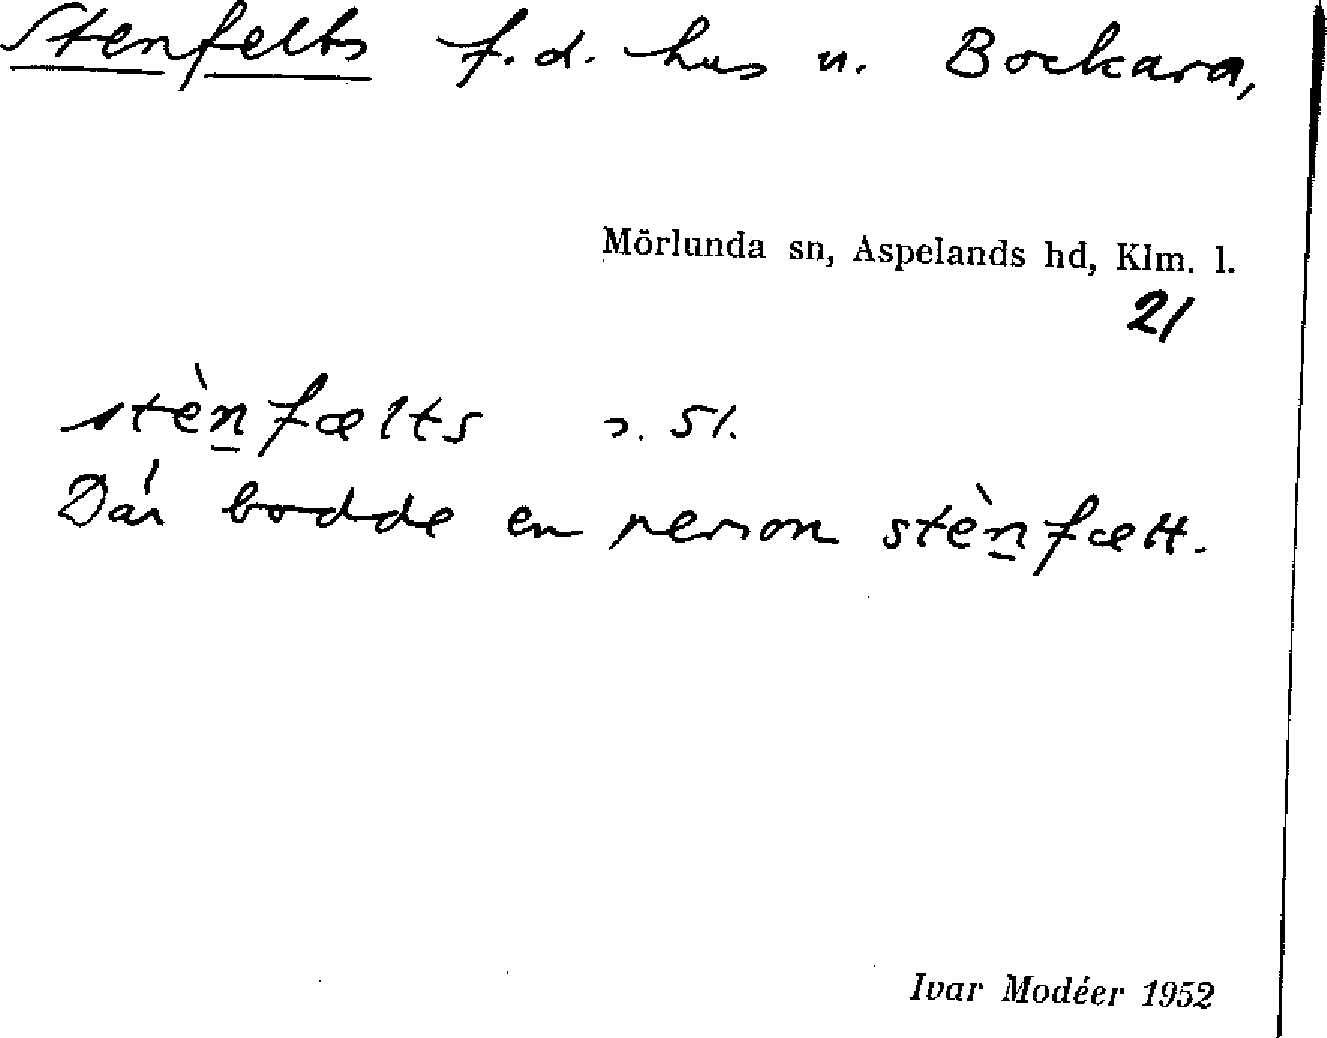 Stenfelts f.d. hus u. Bockara,
Mörlunda sn, Aspelands hd, Klm. l.
21
stèn̲fælts s. 51.
Där bodde en person stèn̲fælt.
Ivar Modéer 1952